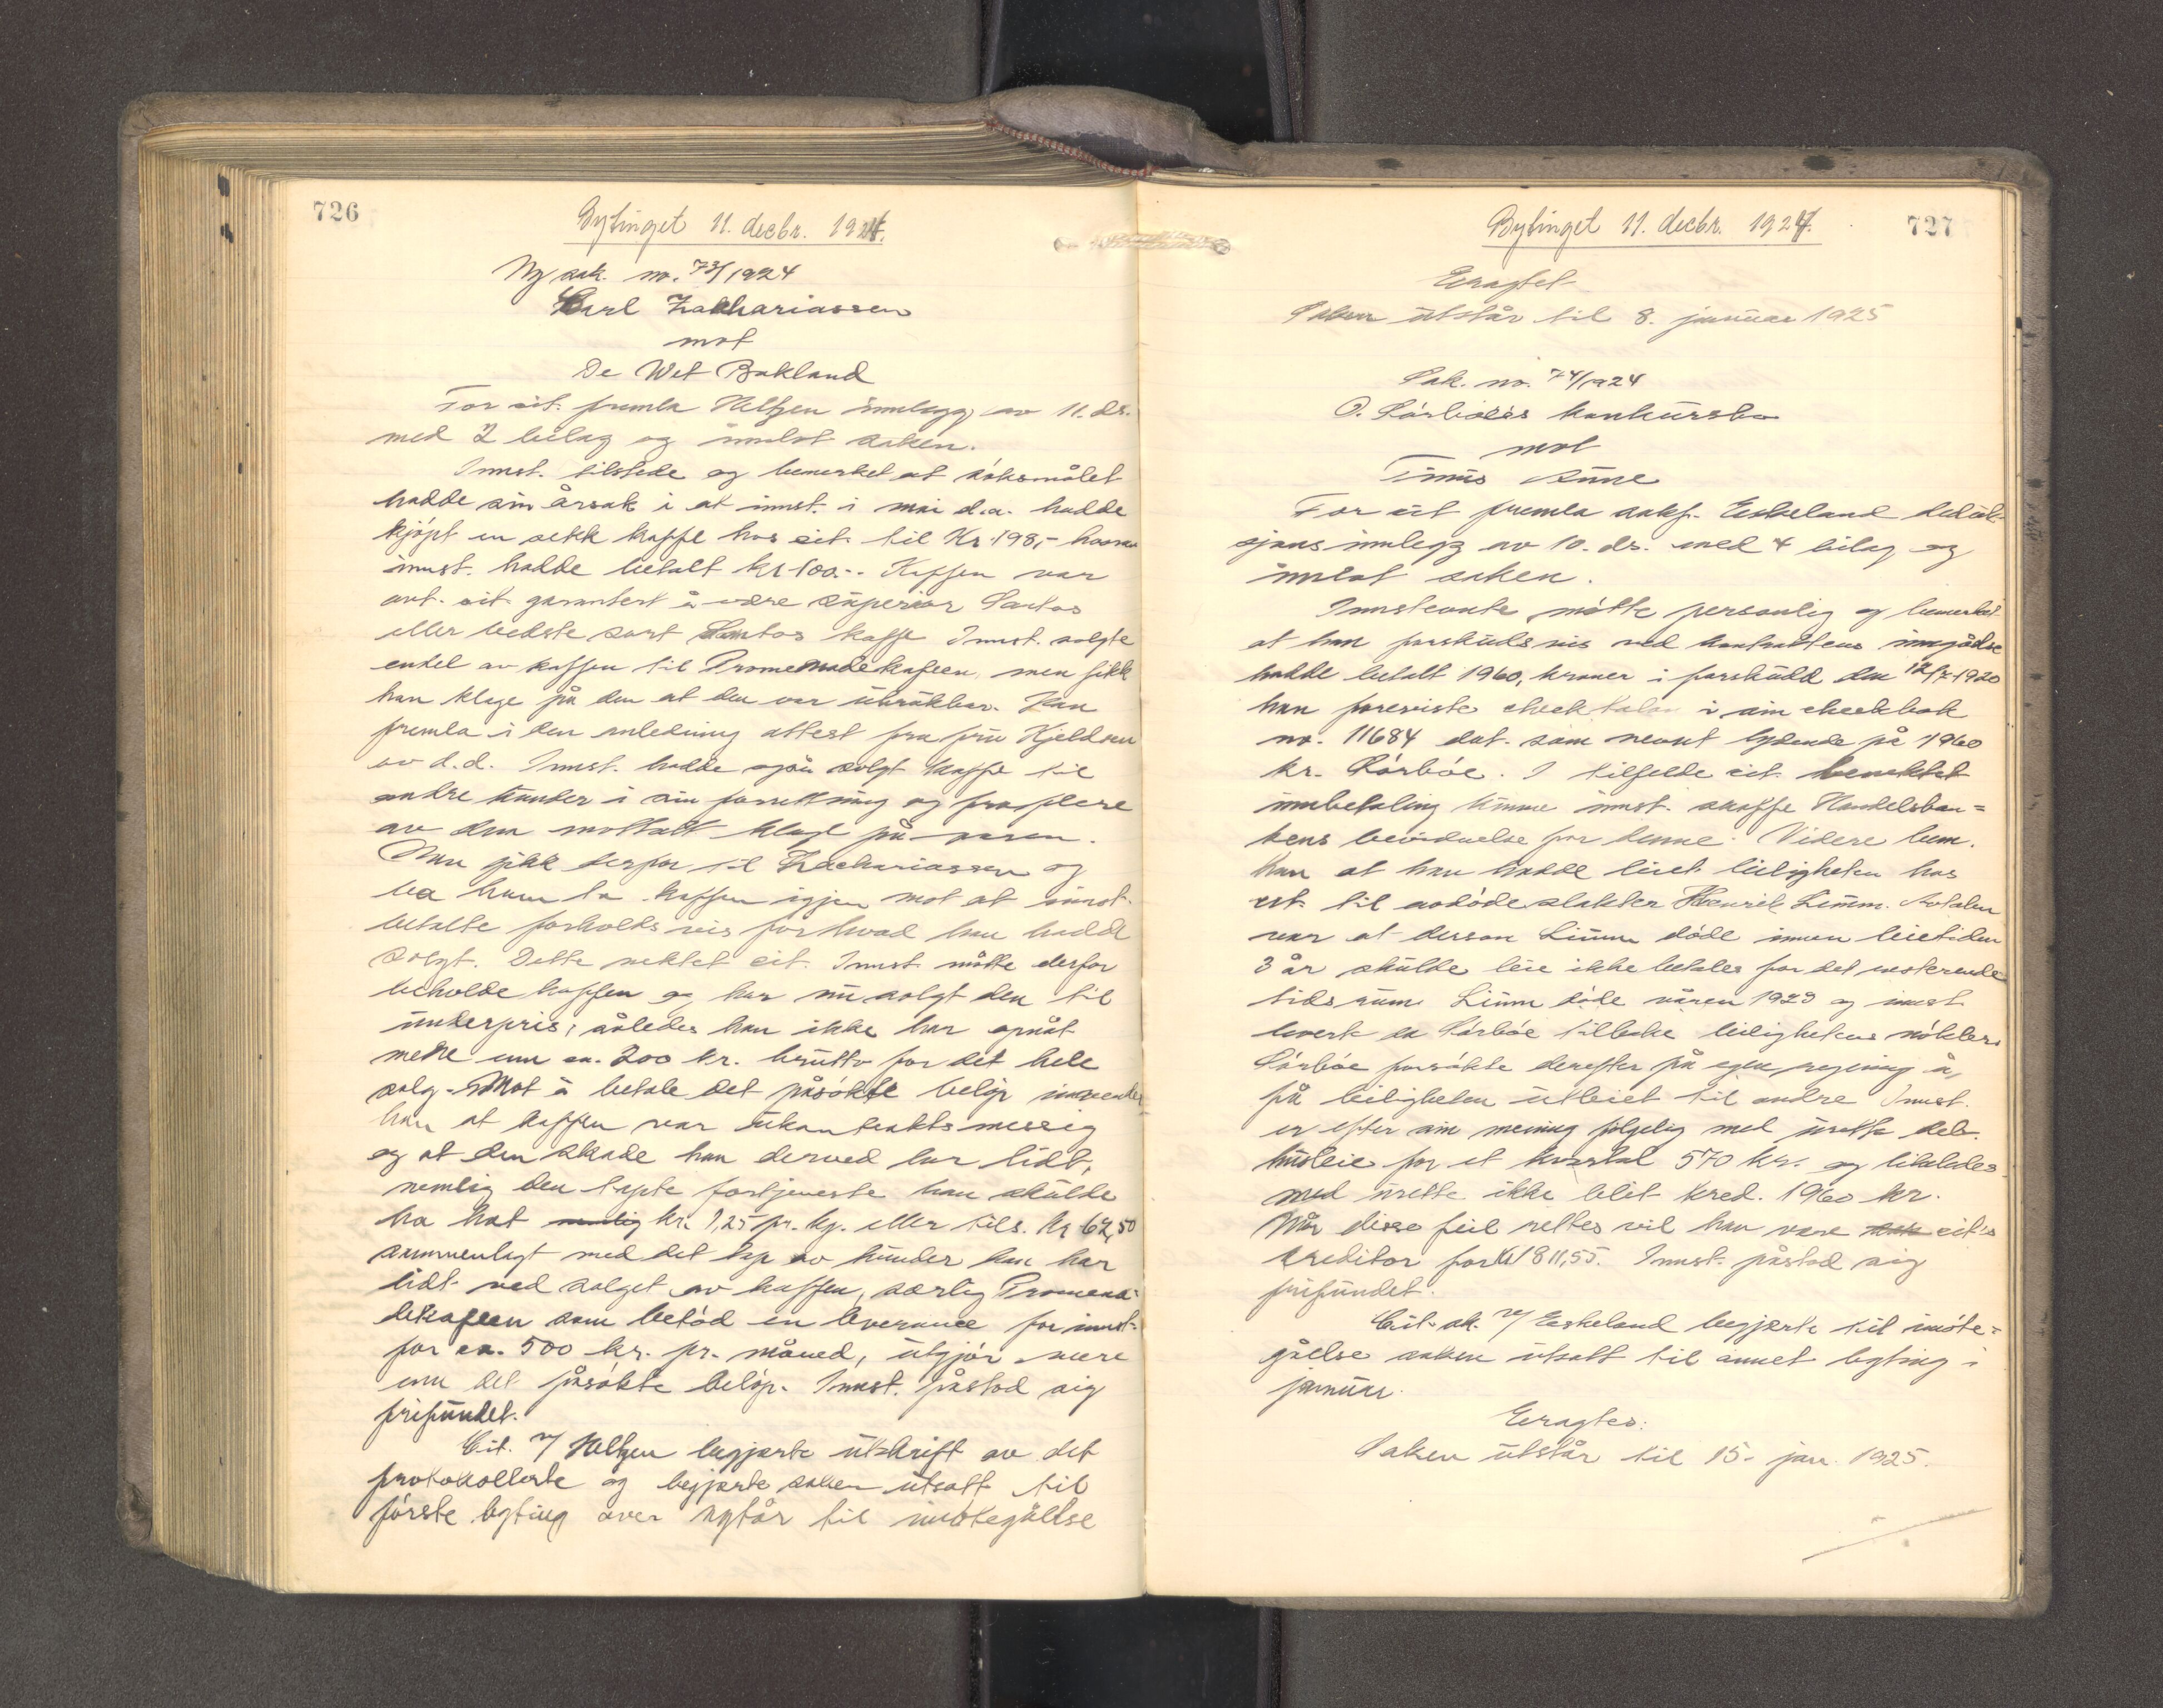 726
Bytinget 11. decbr. 1924.
Ny sak. no. 73/1924
Carl Zakhariassen
mot
De Wet Bakland
For cit. fremla Heltzen innlegg av 11. ds.
med 2 bilag og innlot saken.
Innst. tilstede og bemerket at søksmålet
hadde sin årsak i at innst. i mai d.a. hadde
kjøpt en sekk kaffe hos cit. til Kr. 198,- hvorav
innst. hadde betalt kr 100.-. Kaffen var
av cit. garantert å være superior Santos
eller bedste sort Santos kaffe. Innst. solgte
endel av kaffen til Promenadekafeen, men fikk
han klage på den at den var ubrukbar. Han
fremla i den anledning attest fra fru Kjeldsen
av d.d. Innst. hadde også solgt kaffe til
andre kunder i sin forretning og fra flere
av dem mottatt klage på varen.
Han gikk derfor til Zachariassen og
ba ham ta kaffen igjen mot at innst.
betalte forholdsvis for hvad han hadde
solgt. Dette nektet cit. Innst. måtte derfor
beholde kaffen og har nu solgt den til
underpris, således han ikke har opnåt
mere enn ca. 200 kr. brutto for det hele
salg. Mot å betale det påsøkte beløp innvender
han at kaffen var ukontraktsmessig
og at den skade han derved har lidt,
nemlig den tapte fortjeneste han skulde
ha hat nemlig kr. 1,25 pr. kg. eller tils. kr 62,50
sammenlagt med det tap av kunder han har
lidt ved salget av kaffen, særlig Promena-
dekafeen som betød en leveranse for innst.
for ca. 500 kr. pr. måned, utgjør mere
enn det påsøkte beløp. Innst. påstod sig
frifundet.
Cit. v/ Heltzen begjærte utskrift av det
protokollerte og begjærte saken utsatt til
første byting over nytår til imøtegåelse
727
Bytinget 11. decbr. 1924.
Eragtet
Saken utstår til 8. januar 1925
Sak. no. 74/1924
O. Sørbøes konkursbo
mot
Tinius Aune
For cit fremla sakf. Eskeland deduk-
sjonsinnlegg av 10. ds. med 4 bilag og
innlot saken.
Innstevnte møtte personlig og bemerket
at han forskudsvis ved kontraktens inngåelse
hadde betalt 1960, kroner i forskudd den 12/7-1920
han foreviste check talon i sin checkbok
no. 11684 dat. som nevnt lydende på 1960
kr. Sørbøe. I tilfelde cit. benektet
innbetaling kunne innst. skaffe Handelsban=
kens bevidnelse for denne. Videre bem.
han at han hadde leiet leiligheten hos
cit. til avdøde slakter Henrik Limm. Avtalen
var at dersom Limm døde innen leietiden
3 år skulde leie ikke betales for det resterende
tidsrum. Limm døde våren 1923 og innst.
leverte da Sørbøe tilbake leilighetens nøkler.
Sørbøe forsøkte derefter på egen regning å
få leiligheten utleiet til andre. Innst.
er efter sin mening følgelig med urette deb.
husleie for et kvartal 570 kr. og likeledes
med urette ikke blit kred. 1960 kr.
Når disse feil rettes vil han være cit's
kreditor for kr 1811,55. Innst. påstod sig
frifundet.
Cit. ak. v/ Eskeland begjærte til imøte=
gåelse saken utsatt til annet byting i
januar.
Eragtes:
Saken utstår til 15. jan. 1925.